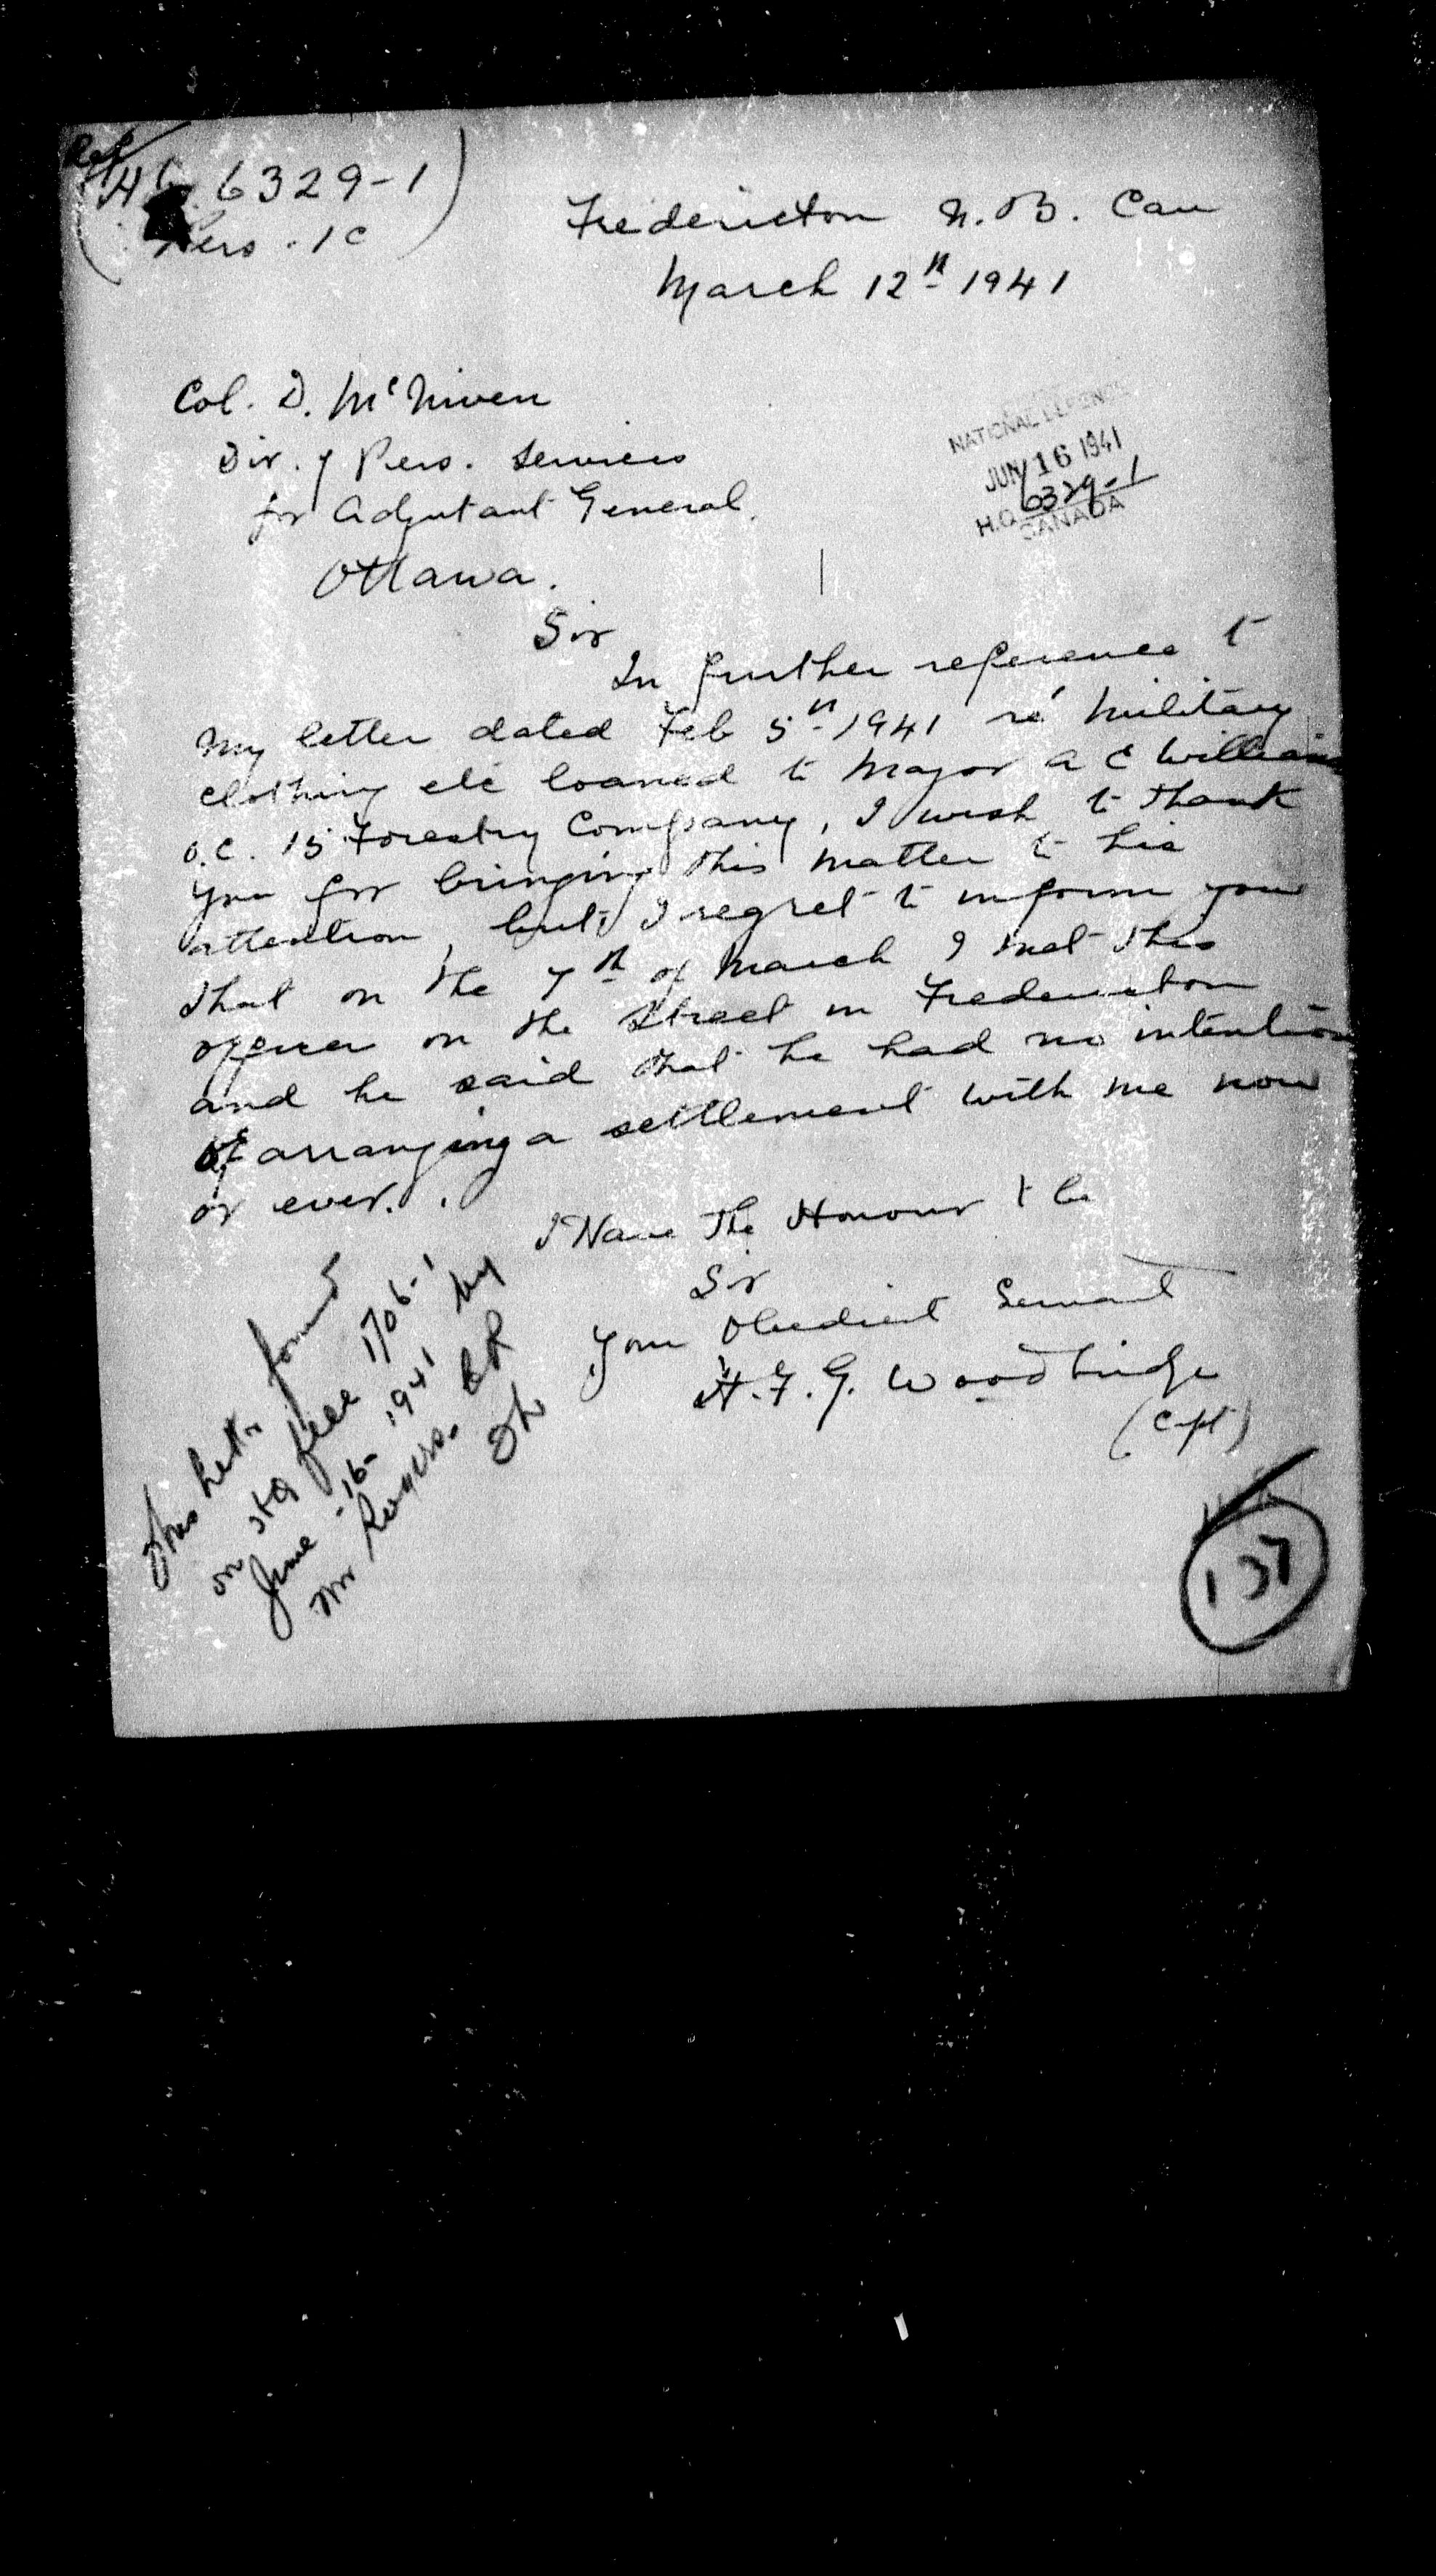 Ref
H 6329-1
Pers. 1c
Fredericton N.B. Can
March 12th 1941
Col. D. McNiven
Dir. of Pers. Services
for Adjutant General.
Ottawa.
NATIONAL DEFENCE
JUN 16 1941
H.Q. 6329-1
CANADA
Sir
In further reference t
my letter dated Feb 5th 1941 re military
clothing etc loaned t Major A C Williams
O.C. 15 Forestry Company, I wish t thank
you for bringing this matter t his
attention, but I regret t inform you
that on the 7th of March I met this
officer on the street in Fredericton
and he said that he had no intention
of arranging a settlement with me now
or ever.
I Have The Honour t be
Sir
Your Obedient Servant
H.F.G. Woodbridge
(Capt)
This letter found
on HQ file 1706-1
June -16- 1941 by
Mr Rogers. CR
137